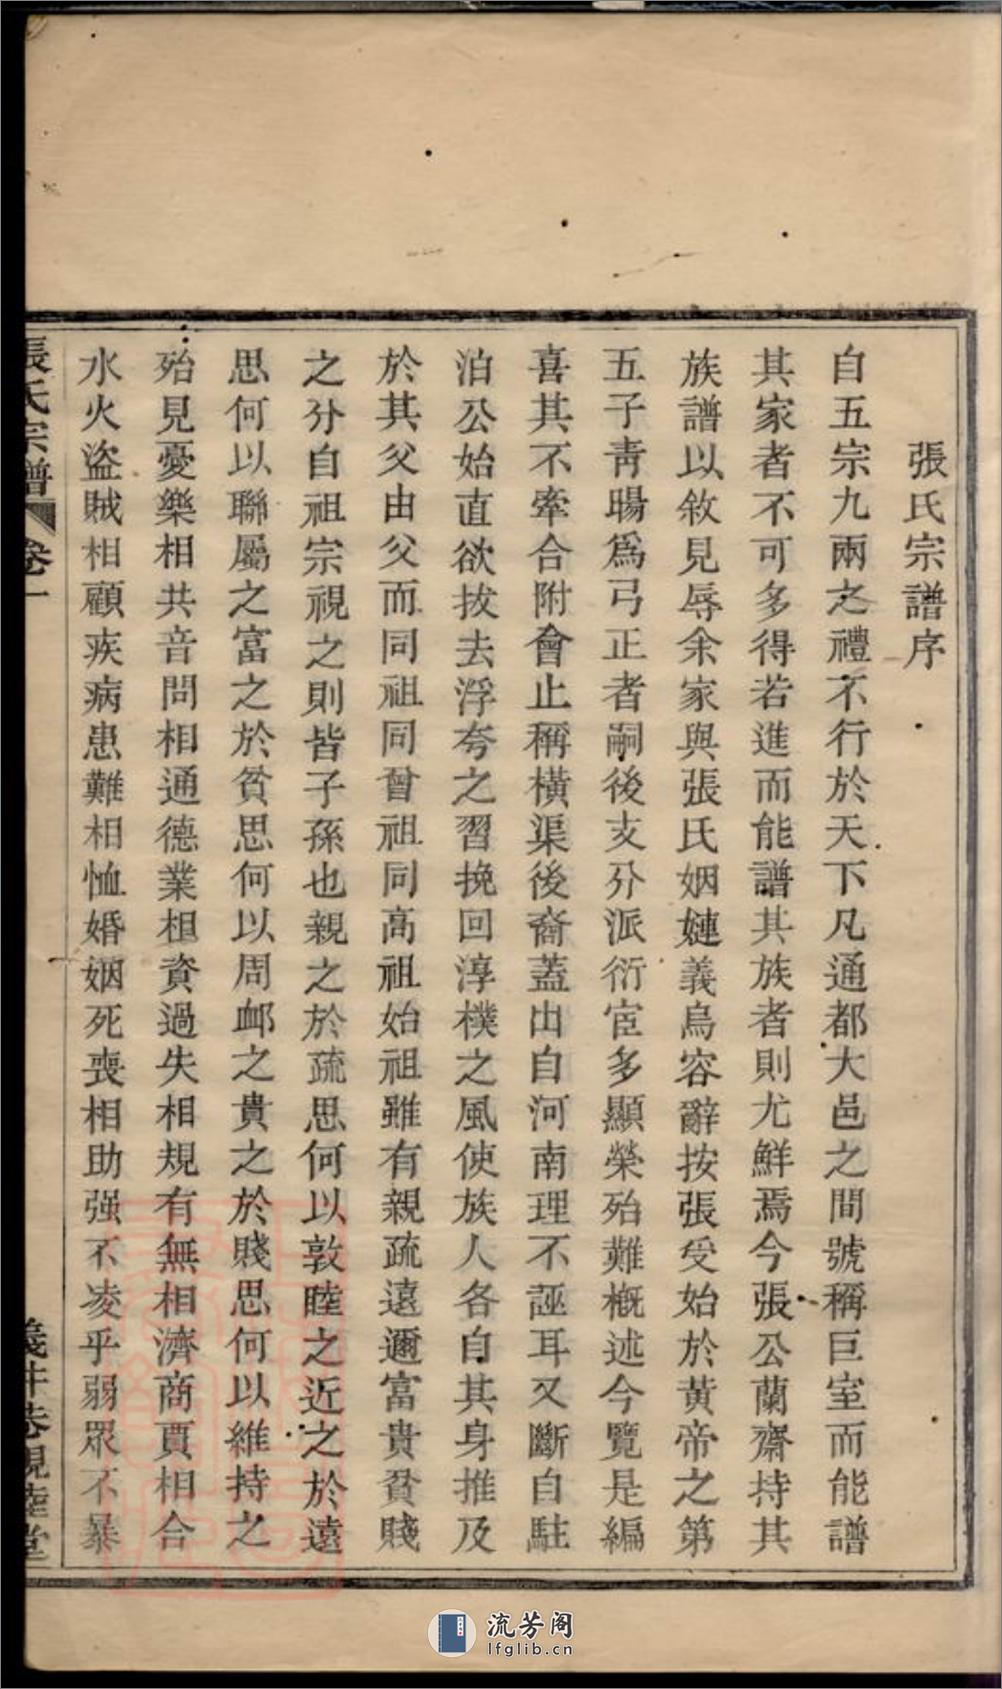 張氏宗譜序
自五宗九兩之禮不行於天下凡通都大邑之間號稱巨室而能譜
其家者不可多得若進而能譜其族者則尤鮮焉今張公蘭齋持其
族譜以敘見辱余家與張氏姻婕義烏容辭按張受始於黄帝之第
五子靑暘爲弓正者嗣後支分派衍宦多顯榮殆難槪述今覽是編
喜其不牽合附會止稱橫渠後裔蓋出自河南理不誣耳又斷自駐
泊公始直欲拔去浮夸之習挽回淳樸之風使族人各自其身推及
於其父由父而同祖同曾祖同高祖始祖雖有親疏遠邇富貴貧賤
之分自祖宗視之則皆子孫也親之於疏思何以敦睦之近之於遠
思何以聯屬之富之於貧思何以周卹之貴之於賤思何以維持之
殆見憂樂相共音問相通德業相資過失相規有無相濟商賈相合
水火盜賊相顧疾病患難相恤婚姻死喪相助强不凌乎弱眾不暴
張氏宗譜 卷一 義井巷親睦堂
流芳阁
lfglib.cn